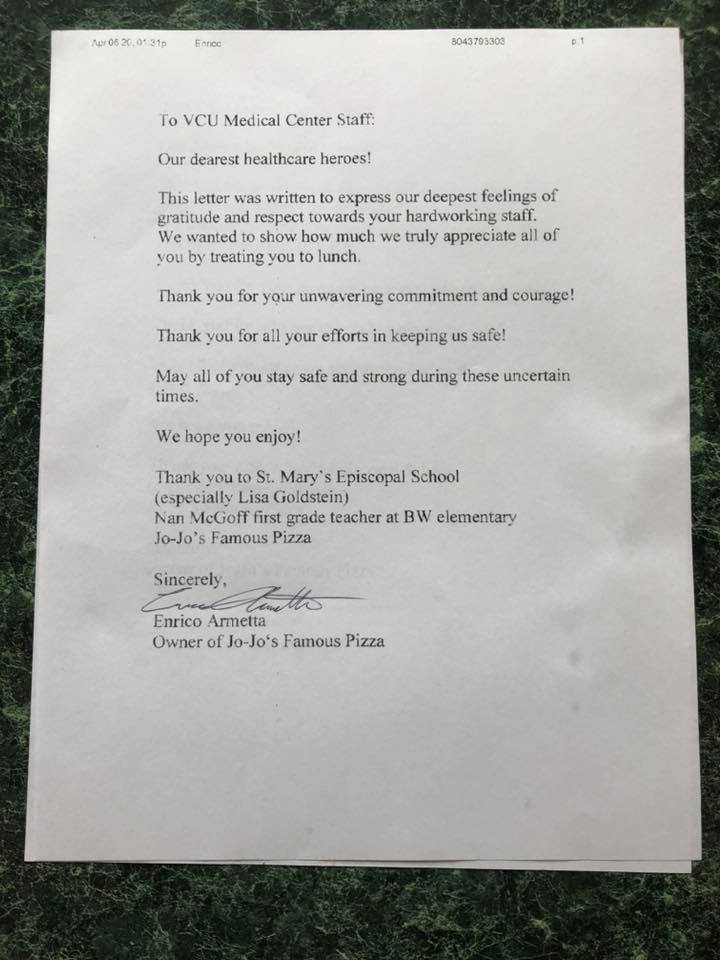 Apr 06 20, 01:31p Enrico 8043793303 p.1
To VCU Medical Center Staff:
Our dearest healthcare heroes!
This letter was written to express our deepest feelings of
gratitude and respect towards your hardworking staff.
We wanted to show how much we truly appreciate all of
you by treating you to lunch.
Thank you for your unwavering commitment and courage!
Thank you for all your efforts in keeping us safe!
May all of you stay safe and strong during these uncertain
times.
We hope you enjoy!
Thank you to St. Mary's Episcopal School
(especially Lisa Goldstein)
Nan McGoff first grade teacher at BW elementary
Jo-Jo's Famous Pizza
Sincerely,
Enrico Armetta
Owner of Jo-Jo‘s Famous Pizza